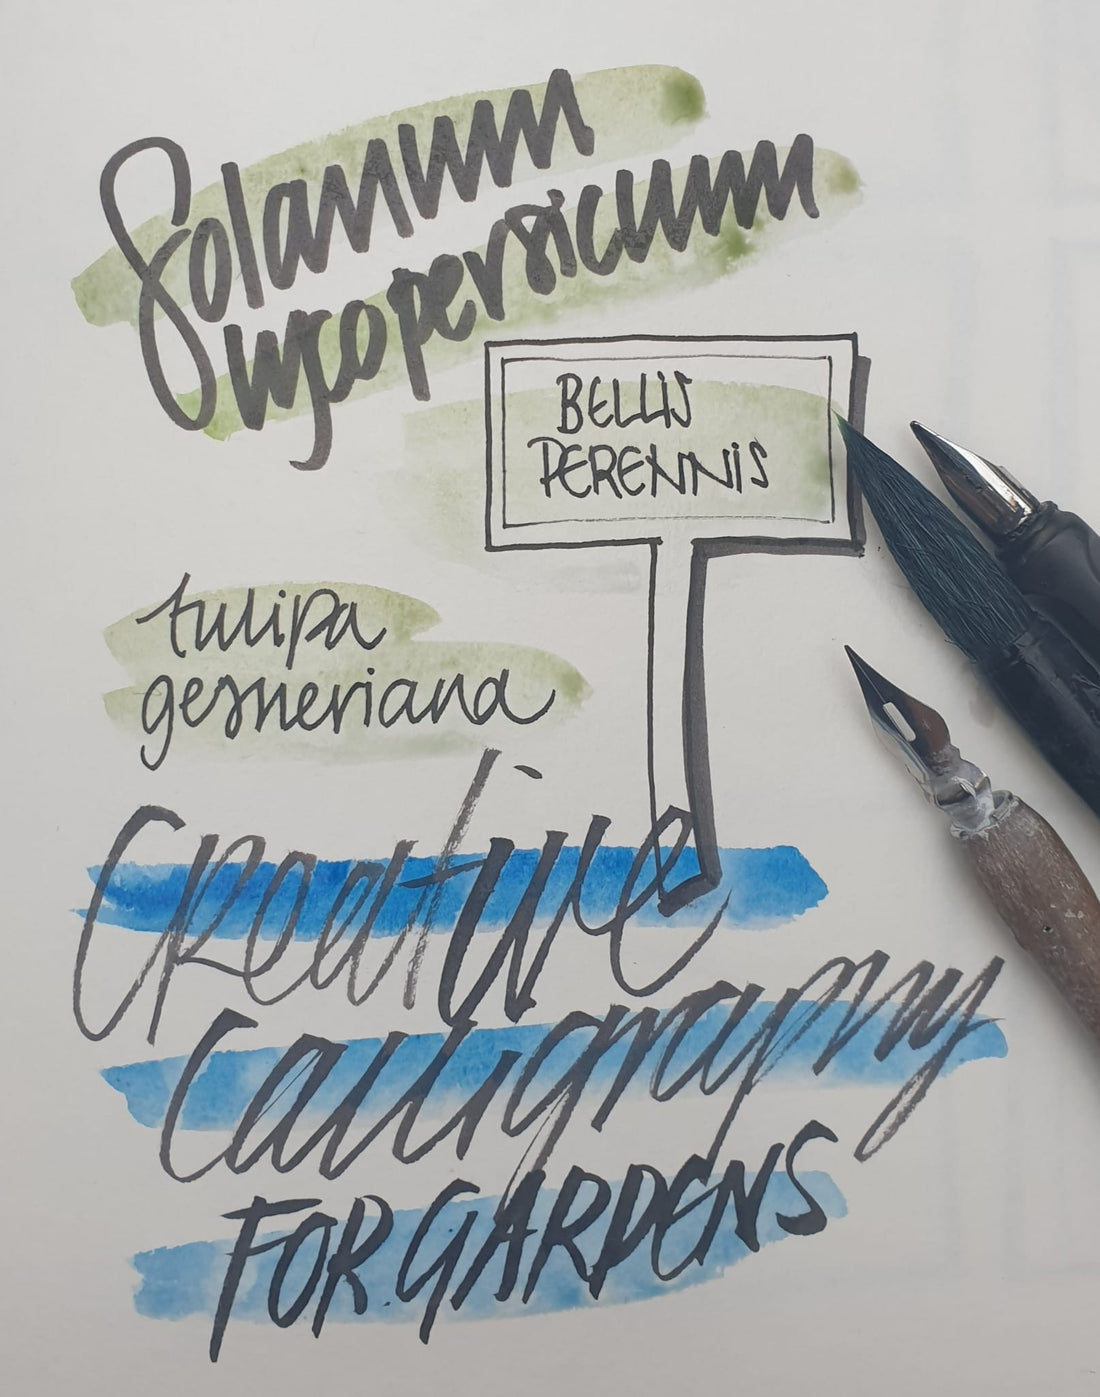 Solanum
lycopersicum
BELLIS
PERENNIS
tulipa
gesneriana
Creative
Calligraphy
FOR GARDENS